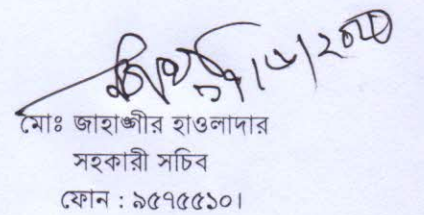 মোঃ জাহাঙ্গীর হাওলাদার
সহকারী সচিব
ফোন : ৯৫৭৫৫১০১।